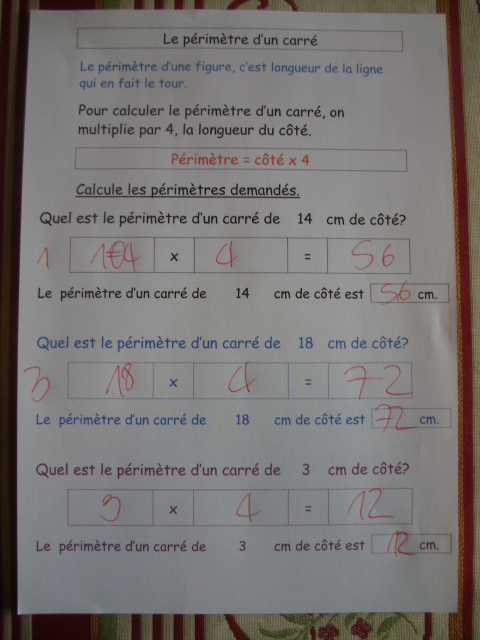 Le périmètre d'un carré
Le périmètre d'une figure, c'est longueur de la ligne
qui en fait le tour.
Pour calculer le périmètre d'un carré, on
multiplie par 4, la longueur du côté.
Périmètre = côté x 4
Calcule les périmètres demandés.
Quel est le périmètre d'un carré de 14 cm de côté?
1 14 x 4 = 56
Le périmètre d'un carré de 14 cm de côté est 56 cm.
Quel est le périmètre d'un carré de 18 cm de côté?
3 18 x 4 = 72
Le périmètre d'un carré de 18 cm de côté est 72 cm.
Quel est le périmètre d'un carré de 3 cm de côté?
3 x 4 = 12
Le périmètre d'un carré de 3 cm de côté est 12 cm.